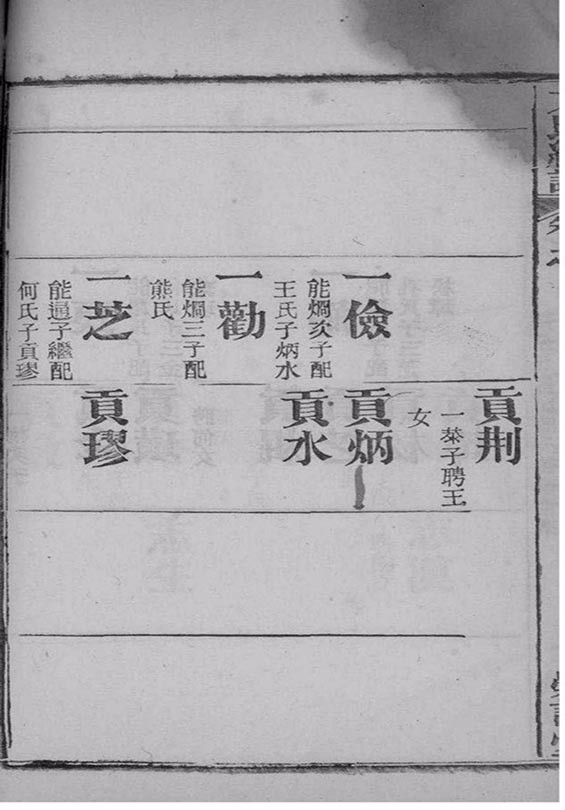 一儉
能燗次子配
王氏子炳水
一勸
能燗三子配
熊氏
一芝
能通子繼配
何氏子貢璆
貢荆
一棻子聘王
女
貢炳
貢水
貢璆